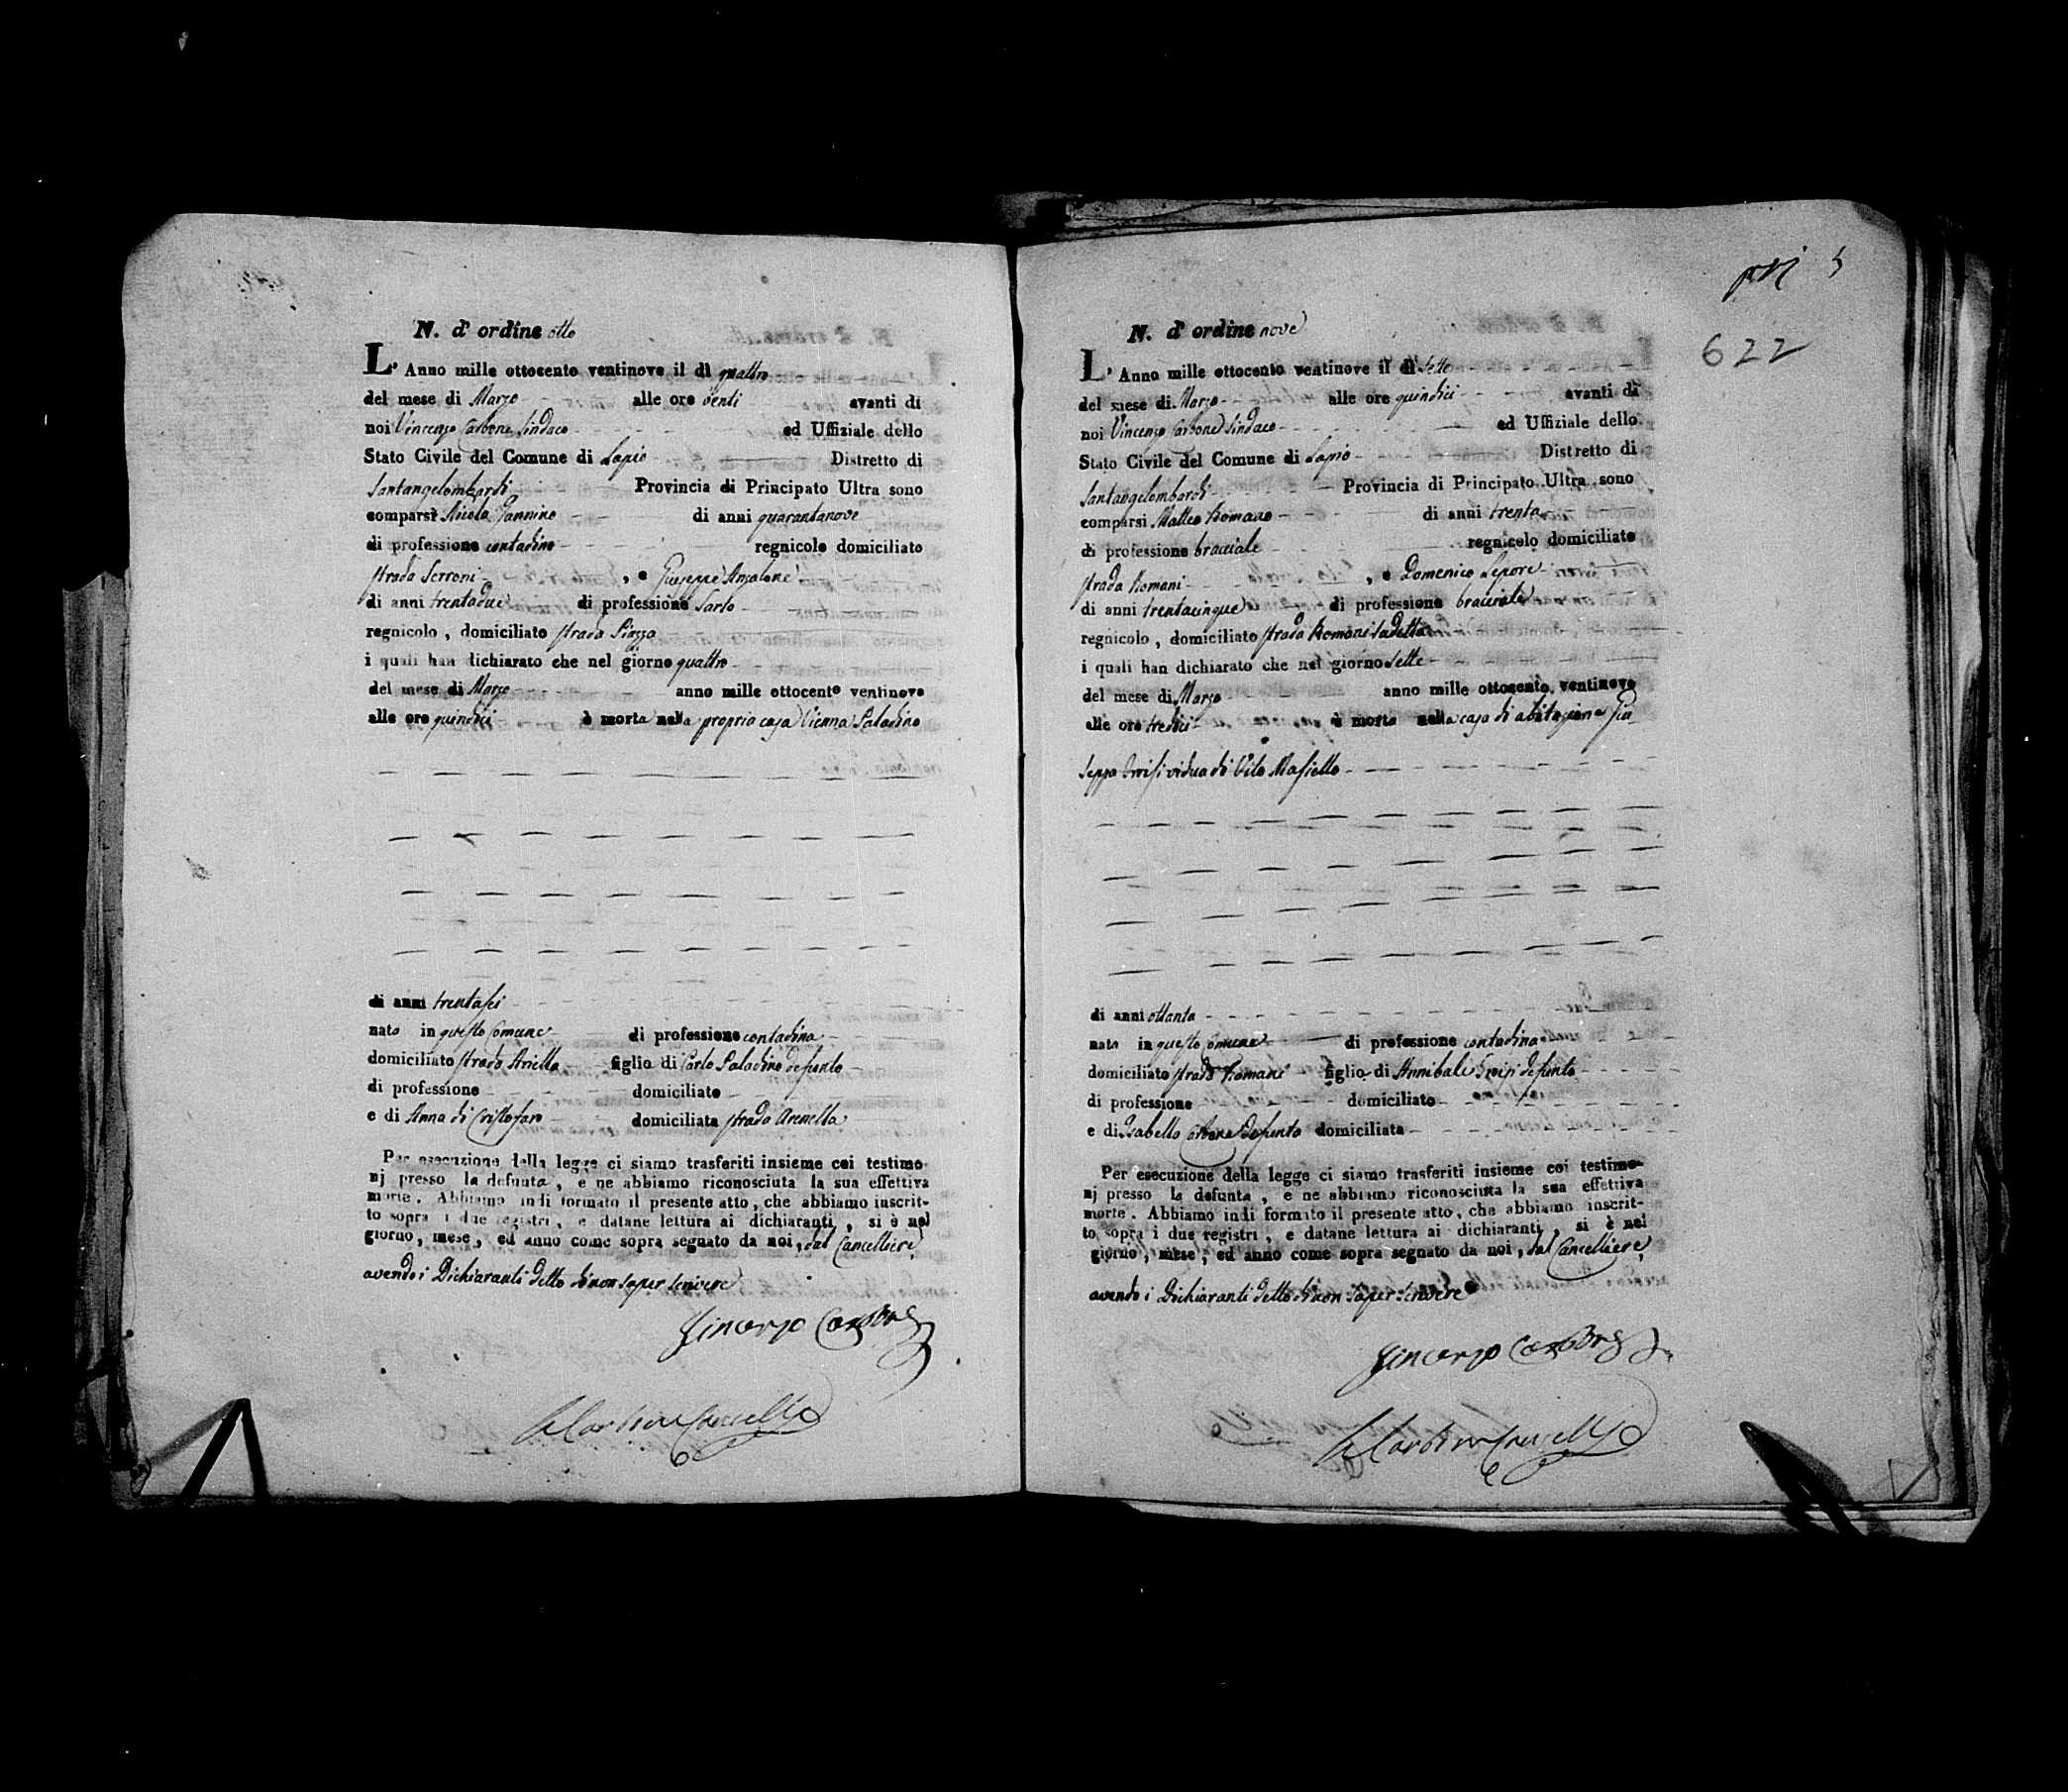 N. d' ordine otto
L' Anno mille ottocento ventinove il dì quattro
del mese di Marzo alle ore venti avanti di
noi Vincenzo Carbone Sindaco ed Uffiziale dello
Stato Civile del Comune di Lapio Distretto di
Santangelombardi Provincia di Principato Ultra sono
comparsi Nicola Jannino di anni quarantanove
di professione contadino regnicolo domiciliato
strada Serroni , e Giuseppe Anzalone
di anni trentadue di professione Sarto
regnicolo , domiciliato strada Piazza
i quali han dichiarato che nel giorno quattro
del mese di Marzo anno mille ottocento ventinove
alle ore quindici è morta nella propria casa Vienna Paladino
di anni trentasei
nato in questo Comune di professione contadina
domiciliato strada figlio di Carlo Paladino defunto
di professione domiciliato
e di Anna di Cristofaro domiciliata strada Arenella
Per esecuzione della legge ci siamo trasferiti insieme coi testimo-
nj presso la defunta , e ne abbiamo riconosciuta la sua effettiva
morte . Abbiamo indi formato il presente atto , che abbiamo inscrit-
to sopra i due registri , e datane lettura ai dichiaranti , si è nel
giorno , mese , ed anno come sopra segnato da noi , dal Cancelliere,
avendo i Dichiaranti detto di non saper scrivere
Vincenzo Carbone
N. d' ordine nove
L' Anno mille ottocento ventinove il dì sette
del mese di Marzo alle ore quindici avanti di
noi Vincenzo Carbone Sindaco ed Uffiziale dello
Stato Civile del Comune di Lapio Distretto di
Santangelombardi Provincia di Principato Ultra sono
comparsi Matteo Romano di anni trenta
di professione bracciale regnicolo domiciliato
strada Romani , e Domenico Lepore
di anni trentacinque di professione bracciale
regnicolo , domiciliato strada Romani sudetta
i quali han dichiarato che nel giorno sette
del mese di Marzo anno mille ottocento ventinove
alle ore tredici è morta nella casa di abitazione Giu-
seppa vidua di Vito Masiello
di anni ottanta
nato in questo Comune di professione contadina
domiciliato strada Romani figlio di Annibale defunto
di professione domiciliato
e di Isabella defunta domiciliata
Per esecuzione della legge ci siamo trasferiti insieme coi testimo-
nj presso la defunta , e ne abbiamo riconosciuta la sua effettiva
morte . Abbiamo indi formato il presente atto , che abbiamo inscrit-
to sopra i due registri , e datane lettura ai dichiaranti , si è nel
giorno , mese , ed anno come sopra segnato da noi , dal Cancelliere,
avendo i Dichiaranti detto di non saper scrivere
Vincenzo Carbone
622